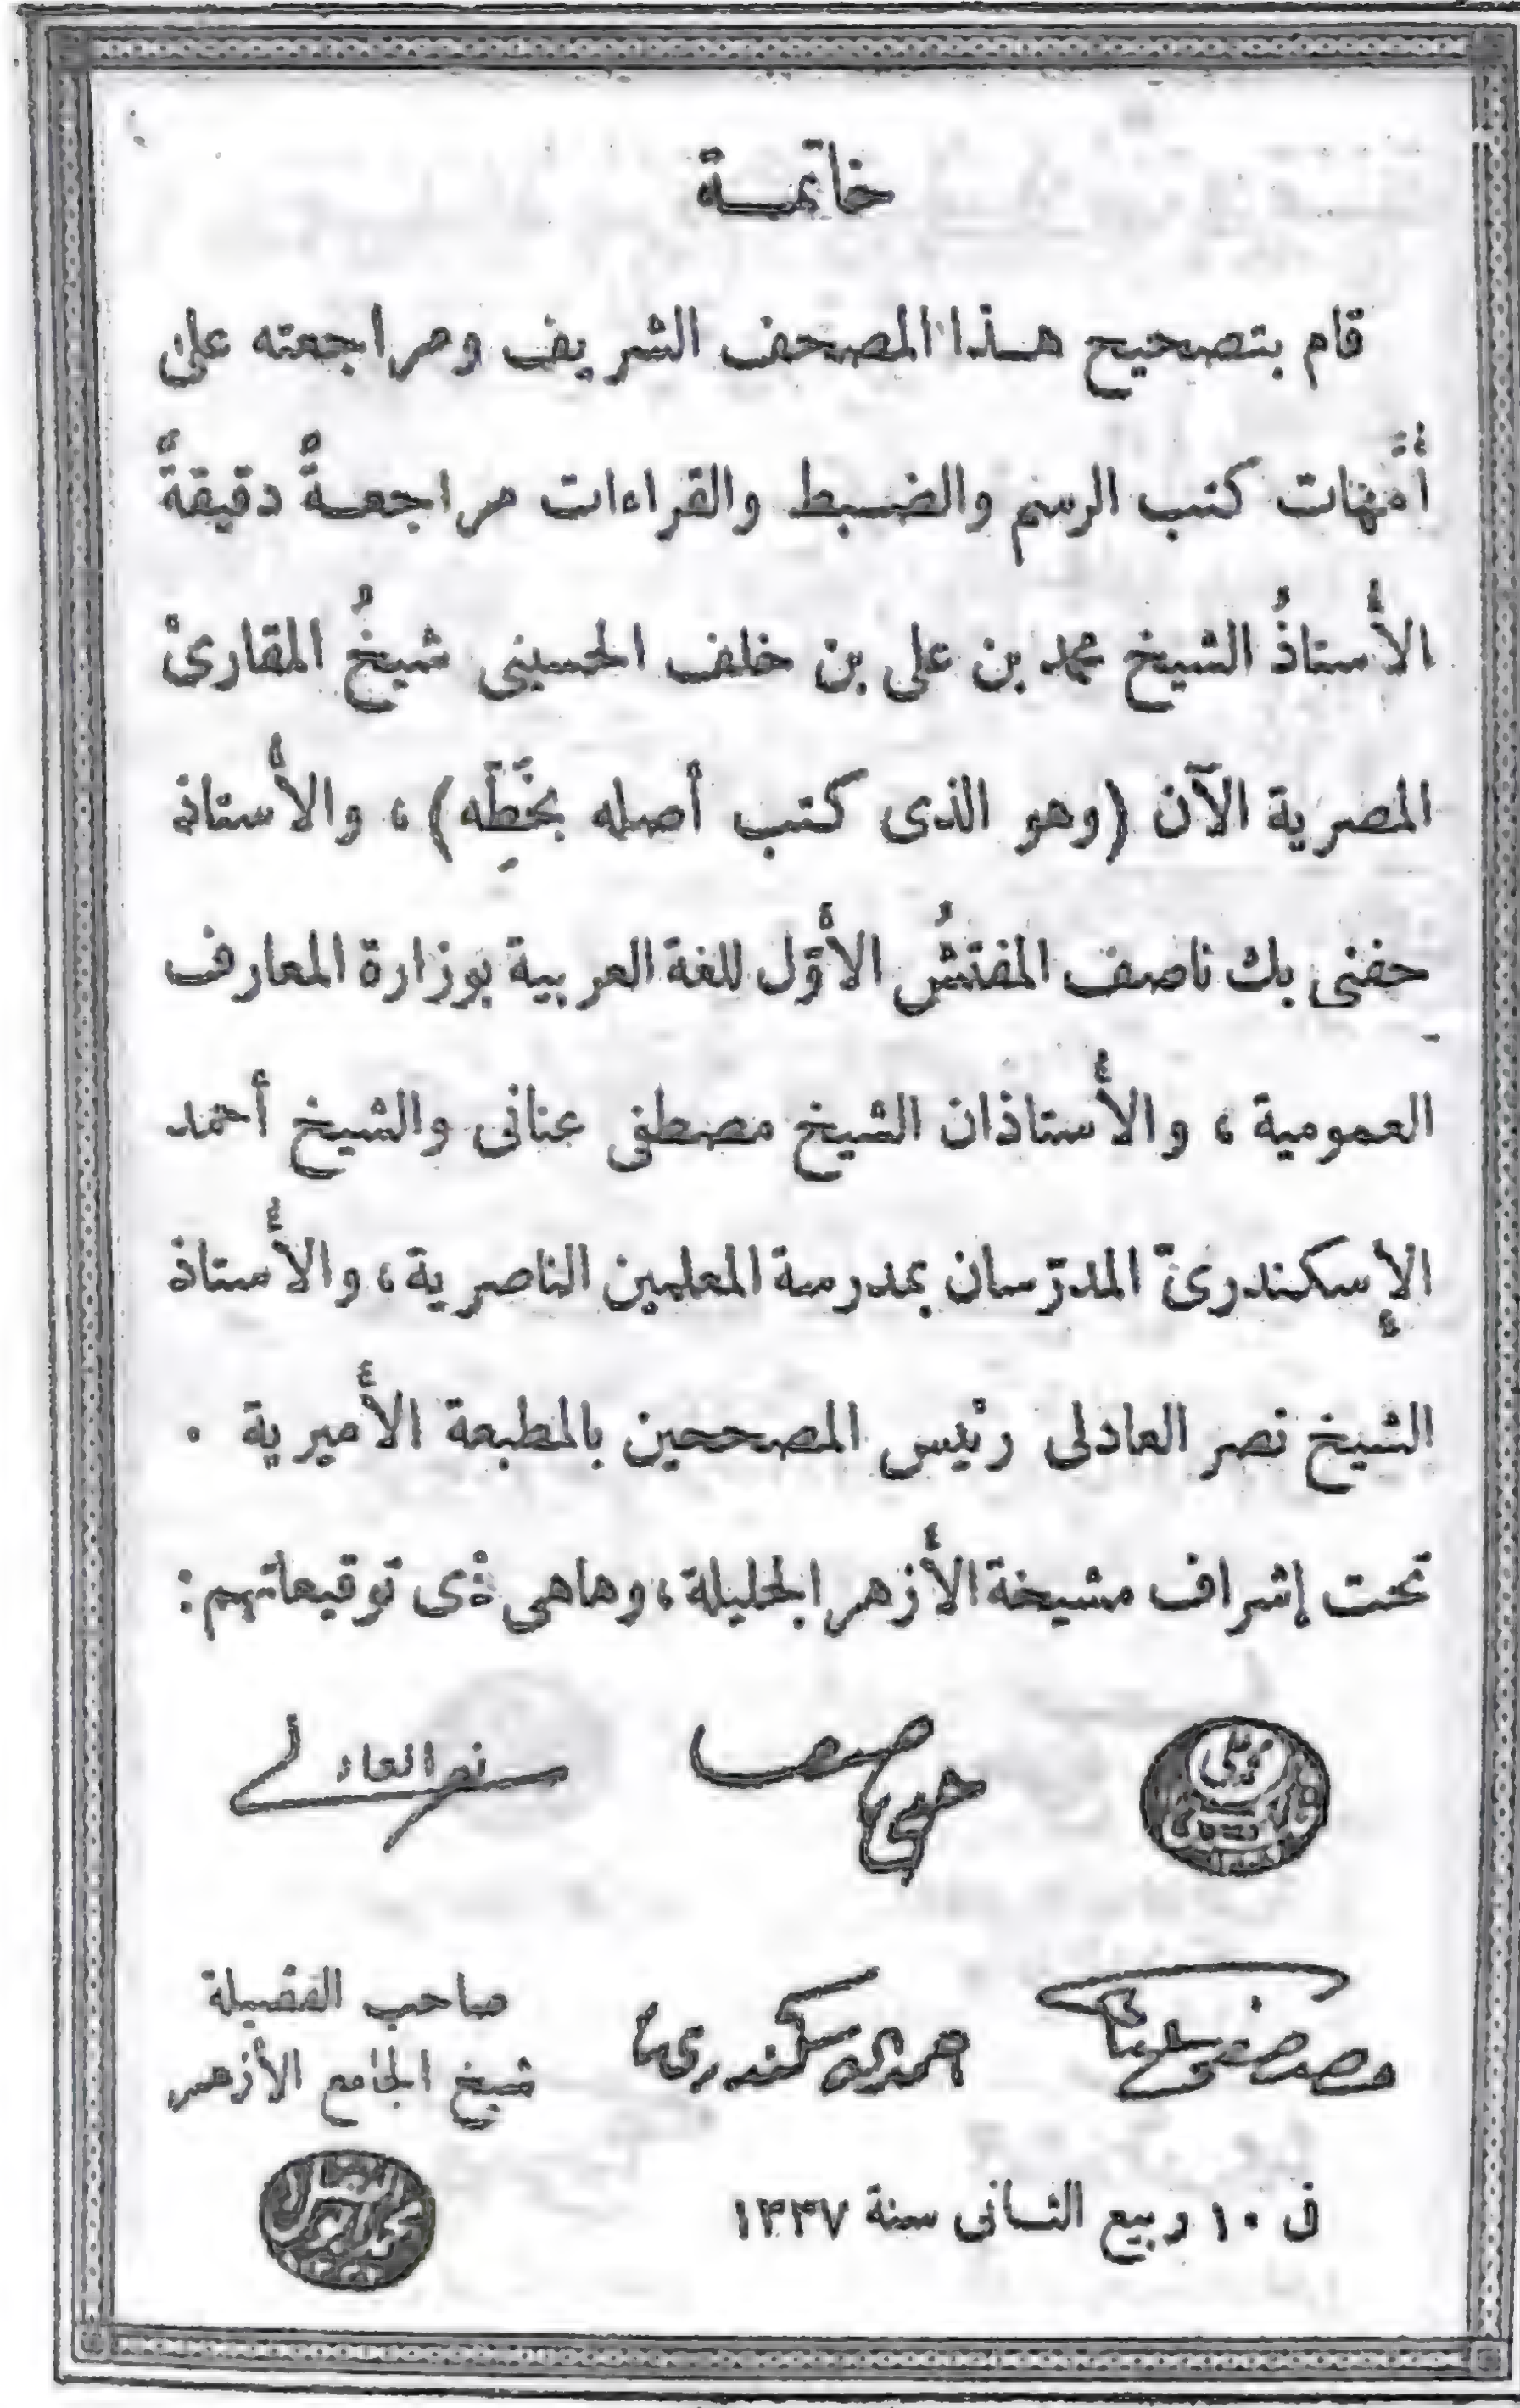 خاتمـــة
قام بتصحيح هـذا المصحف الشريف ومراجعته على
أُمّهات كتب الرسم والضبط والقراءات مراجعةً دقيقةً
الأُستاذُ الشيخ محمد بن على بن خلف الحسينى شيخُ المقارئ
المصرية الآن (وهو الذى كتب أصله بخَطِّه)، والأُستاذ
حفنى بك ناصف المفتشُ الأوّل للغة العربية بوزارة المعارف
العمومية، والأُستاذان الشيخ مصطفى عنانى والشيخ أحمد
الإسكندرىّ المدرّسان بمدرسة المعلمين الناصرية، والأُستاذ
الشيخ نصر العادلى رئيس المصححين بالمطبعة الأميرية .
تحت إشراف مشيخة الأزهر الجليلة، وهاهى ذى توقيعاتهم:
نصر العادلى
مصطفى عنانى
احمد الاسكندرى
صاحب الفضيلة
شيخ الجامع الأزهر
فى ١٠ ربيع الثانى سنة ١٣٣٧